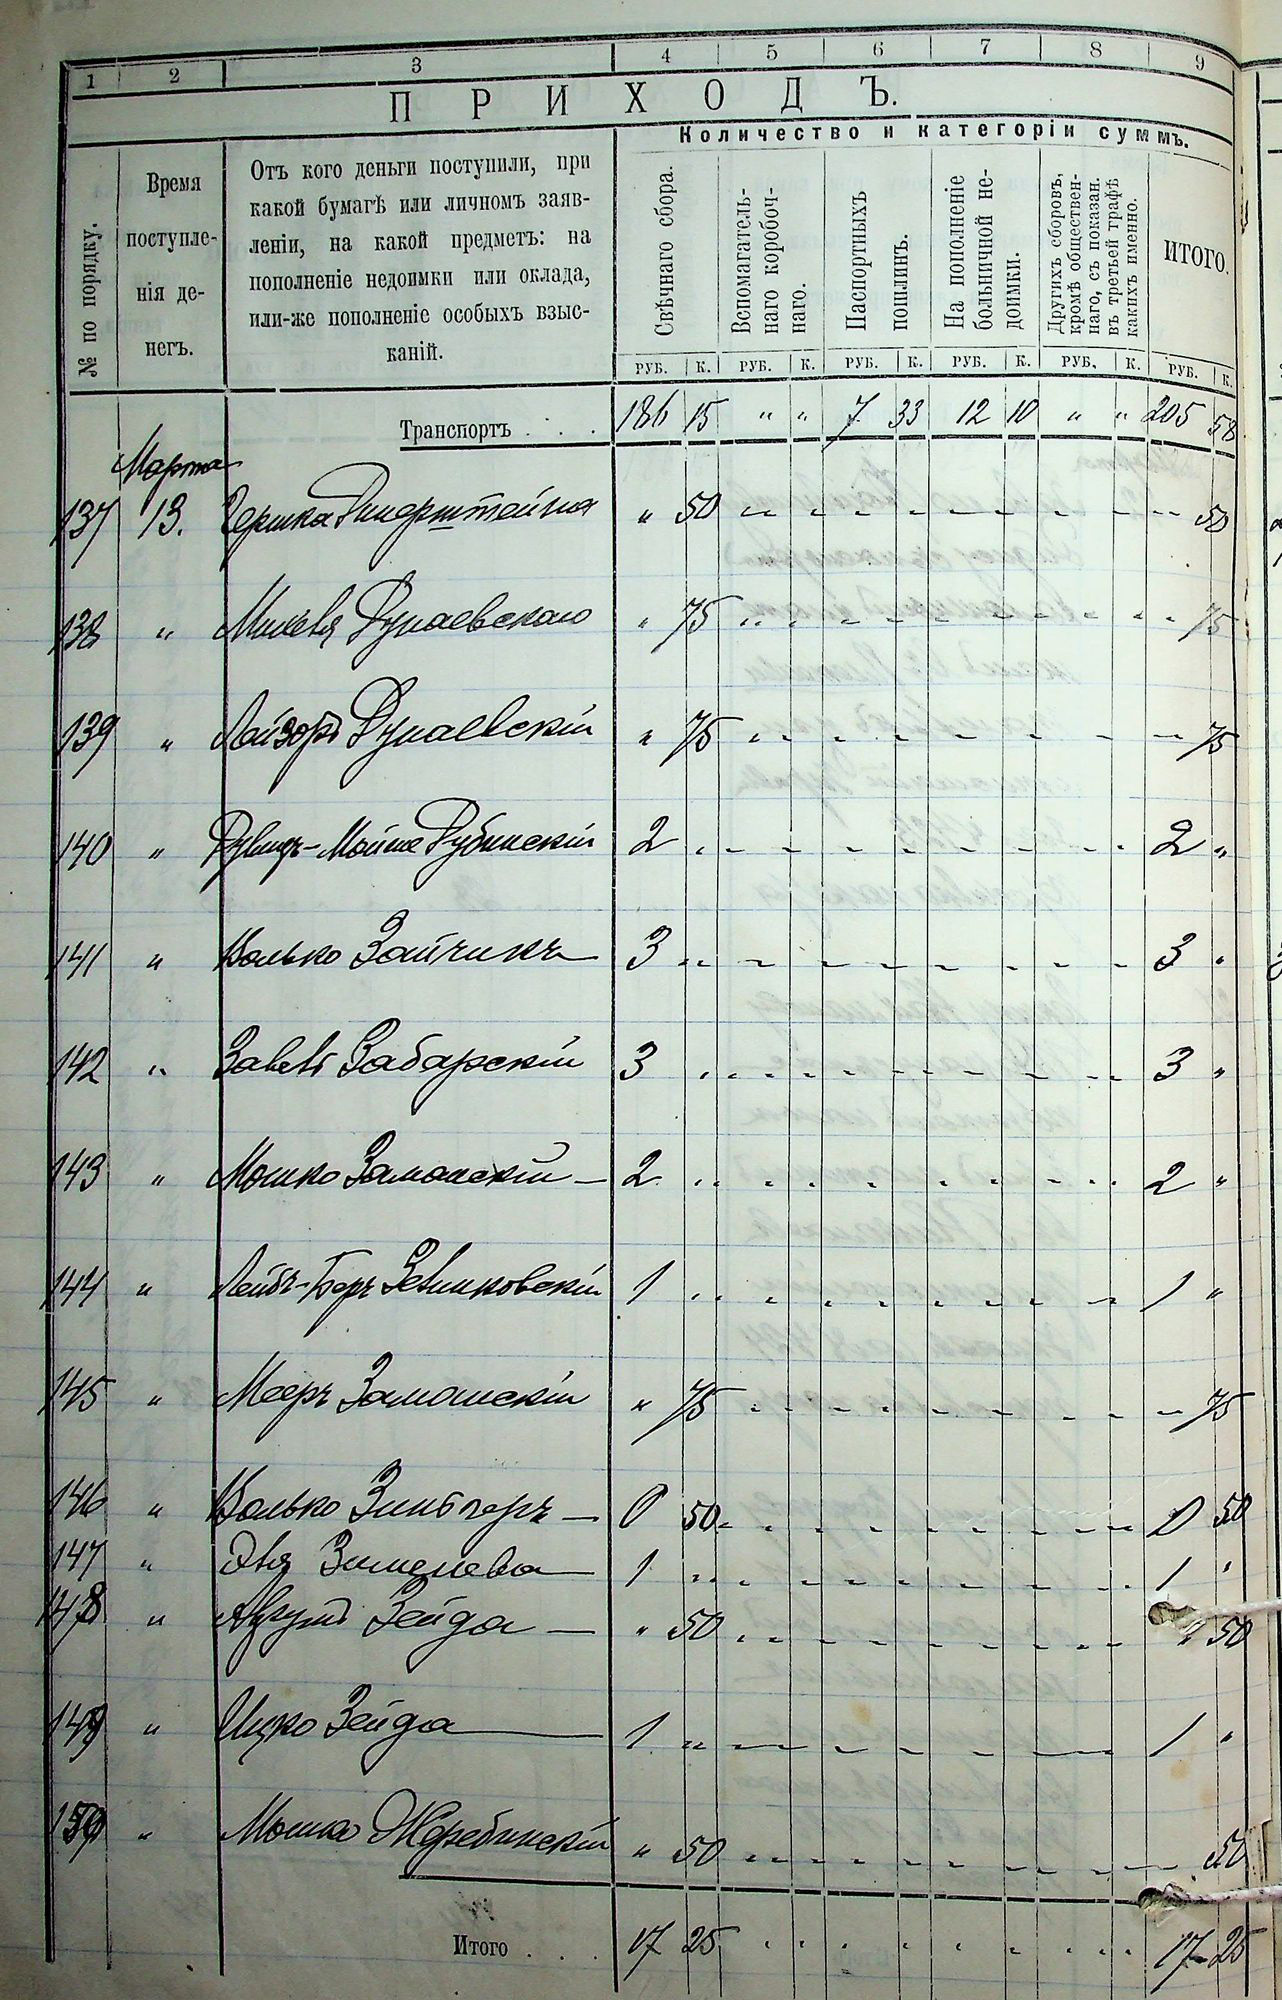 1 2 3 4 5 6 7 8 9
ПРИХОДЪ.
Количество и категоріи суммъ.
№ по порядку.
Время
поступле-
нія де-
негъ.
Отъ кого деньги поступили, при
какой бумагѣ или личномъ заяв-
леніи, на какой предметъ: на
пополненіе недоимки или оклада,
или-же пополненіе особыхъ взыс-
каній.
Свѣчнаго сбора.
Вспомагатель-
наго коробоч-
наго.
Паспортныхъ
пошлинъ.
На пополненіе
больничной не-
доимки.
Другихъ сборовъ,
кромѣ обществен-
наго, съ показан.
въ третьей графѣ
какихъ именно.
ИТОГО.
РУБ. К. РУБ. К. РУБ. К. РУБ. К. РУБ. К. РУБ. К.
Транспортъ . . . 186 15 " " 7 33 12 10 " " 205 58
Марта
137 13. Гершка " 50 50
138 " Дунаевскаго " 75 75
139 " Лейзоръ Дунаевскій " 75 75
140 " Мойше Дубинскій 2 2 "
141 " Волько Зайчикъ 3 3 "
142 " Завель Забарскій 3 3 "
143 " Мошко Заманскій 2 2 "
144 " Лейбъ-Беръ 1 1 "
145 " Мееръ Замошскій " 75 75
146 " Волько Зинбергъ 0 50 0 50
147 " 1 1 "
148 " Зейда " 50 " 50
149 " Ицко Зейда 1 1 "
150 " Мошка Жеребинскій " 50 50
Итого . . . 17 25 17 25